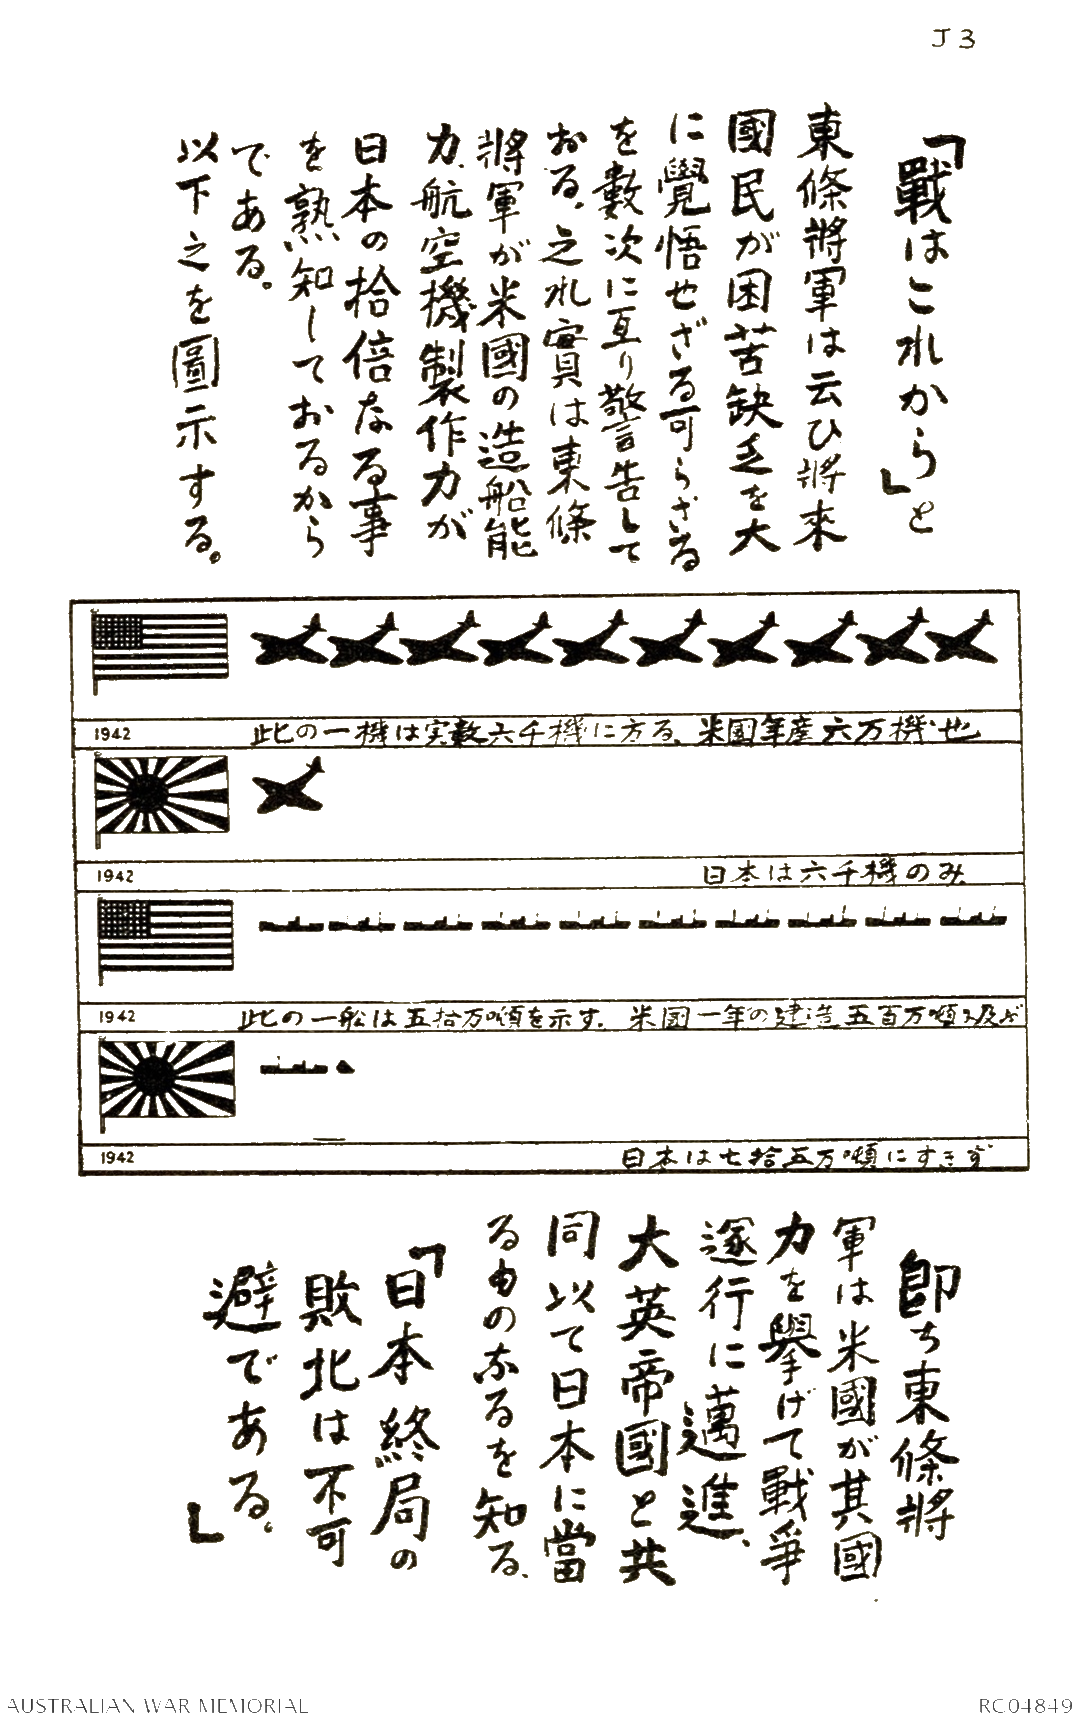 J3
「戰はこれから」と
東條將軍は云ひ將來
國民が困苦缺乏を大
に覺悟せざる可らざる
を數次に亙り警告して
おる、之れ實は東條
將軍が米國の造船能
力、航空機製作力が
日本の拾倍なる事
を熟知しておるから
である。
以下之を圖示する。
1942 此の一機は実數六千機に方る、米國年産六万機也
1942 日本は六千機のみ
1942 此の一船は五拾万噸を示す、米國一年の建造五百万噸に及ぶ
1942 日本は七拾五万噸にすぎず
卽ち東條將
軍は米國が其國
力を擧げて戰爭
遂行に邁進、
大英帝國と共
同以て日本に當
るものなるを知る、
「日本終局の
敗北は不可
避である。」
AUSTRALIAN WAR MEMORIAL
RC04849